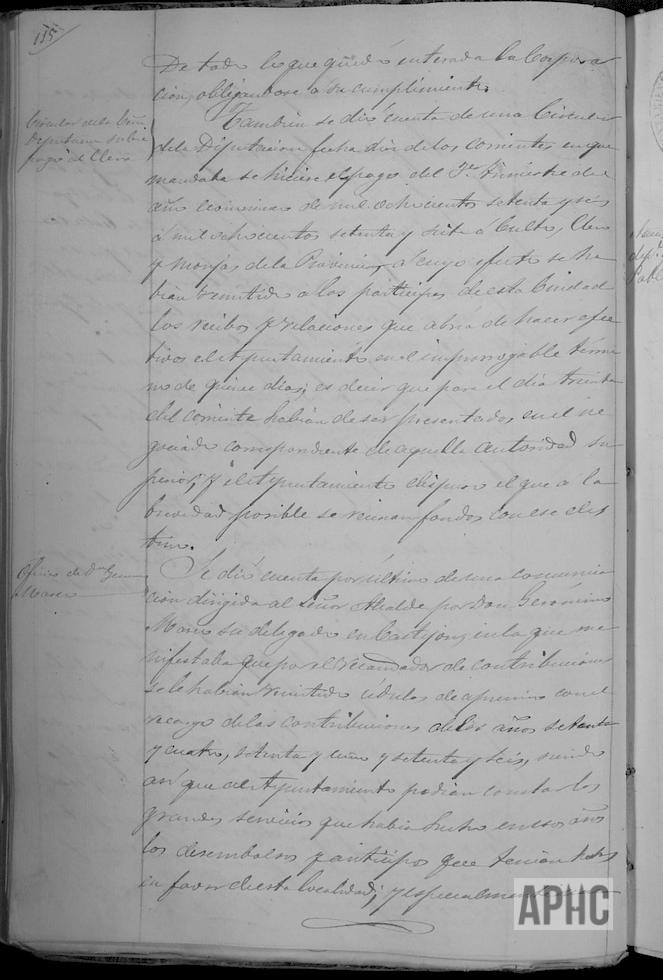 115
De todo lo que quedó enterada la Corpora
cion, obligandose a su cumplimiento.
Circular de la Exma
Diputacion sobre
pago al Clero
Tambien se dió cuenta de una Circular
de la Diputacion fecha dies de los corrientes en que
mandaba se hiciese el pago del 3er trimestre del
año economico de mil ochocientos setenta y seis
á mil ochocientos setenta y siete á Culto, Clero
y Monjas de la Provincia, á cuyo efecto se ha
bian remitido a los participes de esta Ciudad
los recibos y relaciones que abria de hacer efec
tivos el Ayuntamiento en el improrrogable térmi
no de quince dias; es decir que para el dia treinta
del corriente habian de ser presentados en el ne
gociado correspondiente de aquella autoridad su
perior, y el Ayuntamiento dispuso el que á la
brevedad posible se reunan fondos con ese des
tino.
Oficio de Dn Geronimo
Mareo
Se dió cuenta por último de una comunica
cion dirigida al Señor Alcalde por Don Gerónimo
su delegado en Castejon, en la que ma
nifestaba que por el recaudador de contribuciones
se le habian remitido cédulas de apremio con el
recargo de las contribuciones de los años setenta
y cuatro, setenta y cinco y setenta y seis, siendo
asi que al Ayuntamiento podian constar los
grandes servicios que habia hecho en esos años
los desembolsos y anticipos que tenian hechos
en favor de esta localidad; y especialmente
APHC